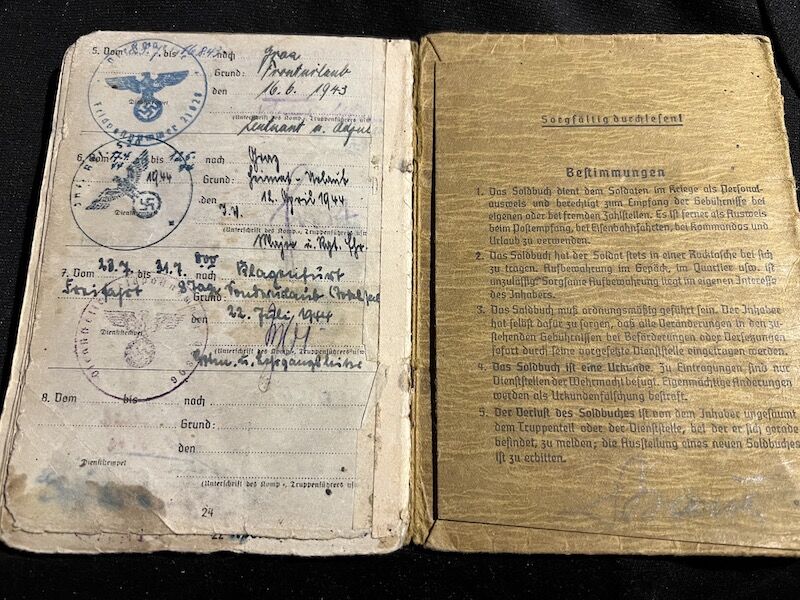 5. Vom bis 16.8.43 nach Graz
Grund: Fronturlaub
den 16. 6. 1943
Dienststempel
Feldpostnummer
(Unterschrift des Komp.-, Truppenführers usw.)
Leutnant u.
6. Vom bis nach Graz
Grund: Heimat-Urlaub
den 12. April 1944
1944
I.V.
(Unterschrift des Komp.-, Truppenführers usw.)
Major u.
7. Vom 23.7. bis 31.7. nach Klagenfurt
Freifahrt Grund: Sonderurlaub
den 22. Juli 1944
Dienststempel
(Unterschrift des Komp.-, Truppenführers usw.)
u. Lehrgangsleiter
8. Vom bis nach
Grund:
den
Dienststempel
(Unterschrift des Komp.-, Truppenführers usw.)
24
Sorgfältig durchlesen!
Bestimmungen
1. Das Soldbuch dient dem Soldaten im Kriege als Personal-
ausweis und berechtigt zum Empfang der Gebührnisse bei
eigenen oder bei fremden Zahlstellen. Es ist ferner als Ausweis
beim Postempfang, bei Eisenbahnfahrten, bei Kommandos und
Urlaub zu verwenden.
2. Das Soldbuch hat der Soldat stets in einer Rocktasche bei sich
zu tragen. Aufbewahrung im Gepäck, im Quartier usw. ist
unzulässig. Sorgsame Aufbewahrung liegt im eigenen Interesse
des Inhabers.
3. Das Soldbuch muß ordnungsmäßig geführt sein. Der Inhaber
hat selbst dafür zu sorgen, daß alle Veränderungen in den zu-
stehenden Gebührnissen bei Beförderungen oder Versetzungen
sofort durch seine vorgesetzte Dienststelle eingetragen werden.
4. Das Soldbuch ist eine Urkunde. Zu Eintragungen sind nur
Dienststellen der Wehrmacht befugt. Eigenmächtige Änderungen
werden als Urkundenfälschung bestraft.
5. Der Verlust des Soldbuches ist von dem Inhaber ungesäumt
dem Truppenteil oder der Dienststelle, bei der er sich gerade
befindet, zu melden; die Ausstellung eines neuen Soldbuches
ist zu erbitten.